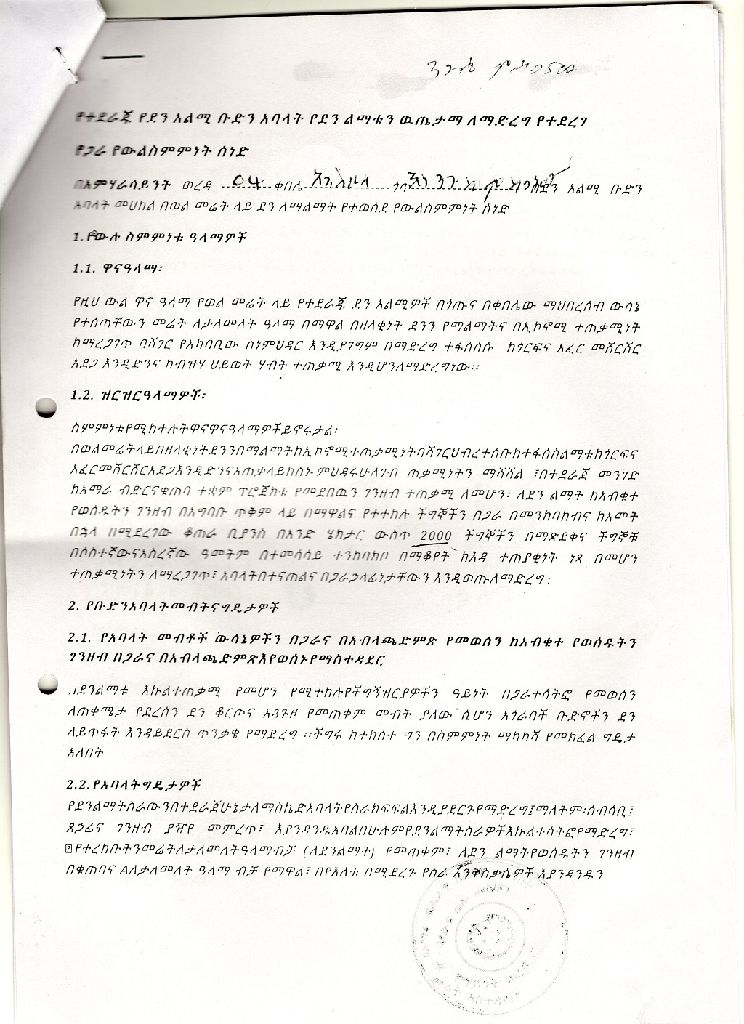 የተደራጁ የደን አልሚ ቡድን አባላት የደን ልማቱን ዉጤታማ ለማድረግ የተደረሃ
የጋራ የውልስምምነት ሰነድ
በአምሃራሳይንት ወረዳ 04 ቀበሌ አልሚ ቡድን
አባላት መሀከል በወል መሬት ላይ ደን ለማልማት የተወሰደ የውልስምምነት ሰነድ
1.የውሉ ስምምነቱ ዓላማዎች
1.1. ዋናዓላማ፡
የዚህ ውል ዋና ዓላማ የወል መሬት ላይ የተደራጁ ደን አልሚዎች በነጡና በቀበሌው ማህበረሰብ ውሳኔ
የተሰጣቸውን መሬት ለታለመለት ዓላማ በማዋል በዘላቂነት ደንን የማልማትና በኢኮኖሚ ተጠቃሚነት
ከማረጋገጥ ባሻገር የአካባቢው ስነምህዳር እንዲያገግም በማድረግ ተፋሰሱ ከጎርፍና አፈር መሸርሸር
አደጋ እንዲድንና ከብዝሃ ህይወት ሃብት ተጠቃሚ እንዲሆንለማድረግነው፡፡
1.2. ዝርዝርዓላማዎች፡
ስምምነቱየሚከተሉትዋናዋናዓላማዎችይኖሩታል፡
በወልመሬትላይበዘላቂነትደንንበማልማትከኢኮኖሚተጠቃሚነትባሻገርህብረተሰቡከተፋሰስልማቱከጎርፍና
አፈርመሸርሸርአደጋእንዲድንና ምህዳሩሁለገብ ጠቃሚነትን ማሻሻል ፣በተደራጀ መንገድ
ከአማራ ብድርናቁጠባ ተቋም ፕሮጀክቱ የመደበዉን ገንዘብ ተጠቃሚ ለመሆን፡ ለደን ልማት ከአብቁተ
የወሰዱትን ገንዘብ በአግባቡ ጥቅም ላይ በማዋልና የተተከሉ ችግኞችን በጋራ በመንከባከብና ከአመት
በኋላ በሚደረገው ቆጠራ ቢያንስ በአንድ ሄክታር ውስጥ 2000 ችግኞችን በማጽደቀና ችግኞቹ
በሶስተኛውናአስረኛው ዓመትም በተመሳሳይ ተንከባክቦ በማቆየት ከእዳ ተጠያቂነት ነጻ በመሆን
ተጠቃሚነትን ለማረጋገጥ፤ አባላትበተናጠልና በጋራኃላፊነታቸውን እንዲወጡለማድረግ፡
2. የቡድንአባላትመብትናግዴታዎች
2.1. የአባላት መብቶች ውሳኔዎችን በጋራና በአብላጫድምጽ የመወሰን ከአብቁተ የወሰዱትን
ገንዘብ በጋራና በአብላጫድምጽእየወሰኑየማስተዳደር
ደንልማቱ እኩልተጠቃሚ የመሆን የሚተከሉየችግኝዝርያዎችን ዓይነት በጋራተሳትፎ የመወሰን
ለጠቀሜታ የደረሰን ደን ቆርጦና አጓጉዞ የመጠቀም መብት ያለው ሲሆን አጎራባች ቡድኖችን ደን
ላይጥፋት እንዳይደርስ ጥንቃቄ የማድረግ ፡፡ችግሩ ከተከሰተ ግን በስምምነት ማካካሻ የመክፈል ግዴታ
አለበት
2.2.የአባላትግዴታዎች
የደንልማትስራውንበተደራጀሁኔታለማስኬድአባላትየስራክፍፍልእንዲያደርጉየማድረግ፤ማለትም፡ሰብሳቢ፣
ጸኃፊና ገንዘብ ያዥየ መምረጥ፤ እያንዳንዱአባልበሁሉምየደንልማትስራዎችእኩልተሳትፎየማድረግ፤
የተረከቡትንመሬትለታለመለትዓላማብቻ (ለደንልማት) የመጠቀም፤ ለደን ልማትየወሰዱትን ገንዘብ
በቁጠባና ልለታለመለት ዓላማ ብቻ የማዋል፤ በየእለቱ በሚደረጉ የስራ እንቅስቃሴዎች እያንዳንዱን